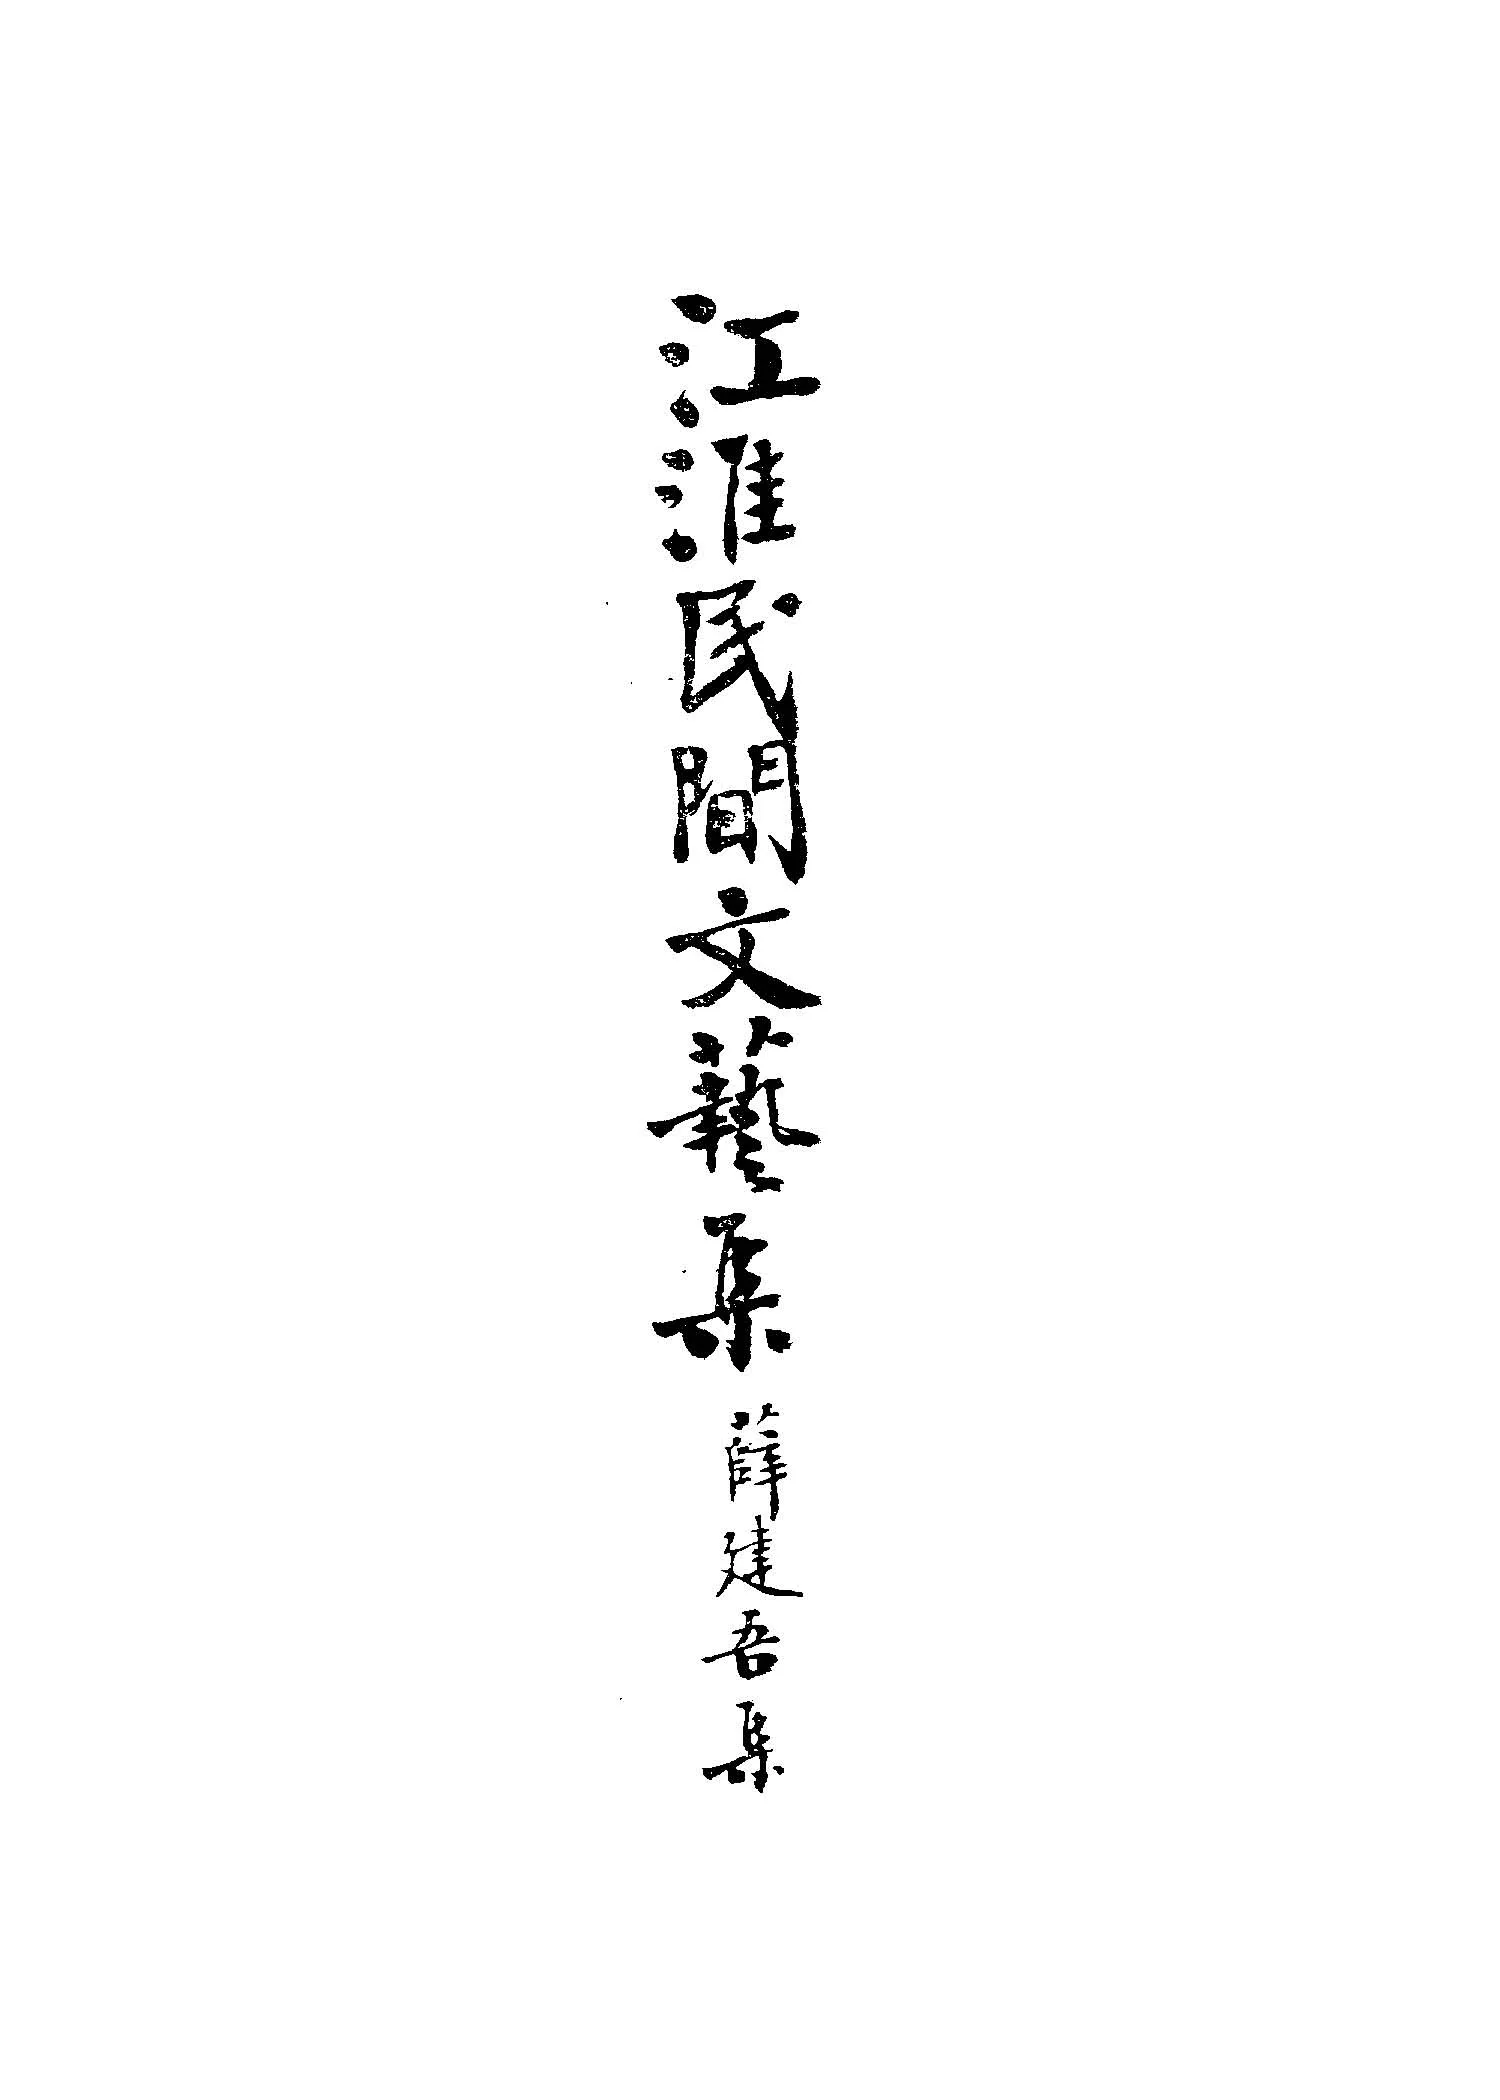 江淮民間文藝集 薛建吾集